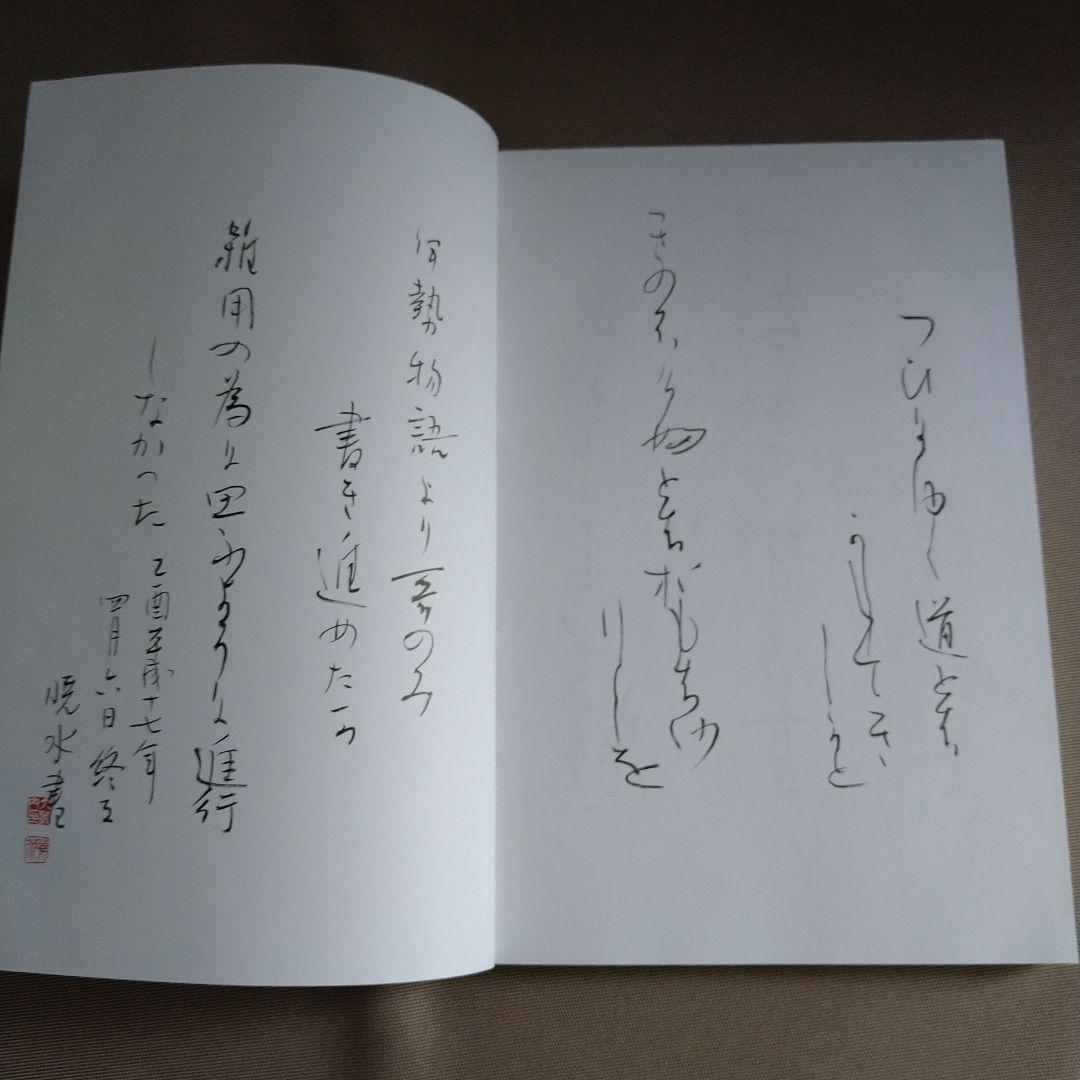 つひにゆく道とは
かねてきゝ
しかと
きのふけふとはおもはゆ
りしを
伊勢物語より哥のみ
書き進めたが
雑用の為に思ふように進行
しなかった
乙酉平成十七年
四月六日終る
暁水書